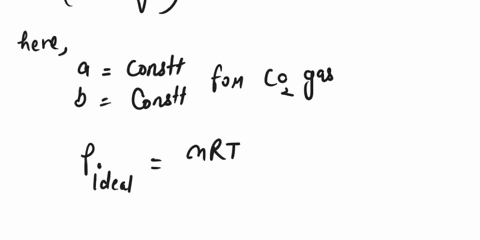 here,
a = Constt
b = Constt for CO₂ gas
P ideal = nRT